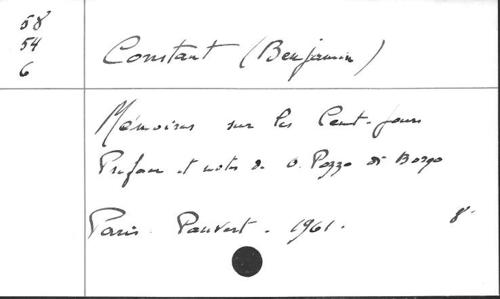 58
54
6
Constant (Benjamin)
Mémoires sur les Cent-Jours
Préface et notes de O. Pozzo di Borgo
Paris. Pauvert. 1961. 8°